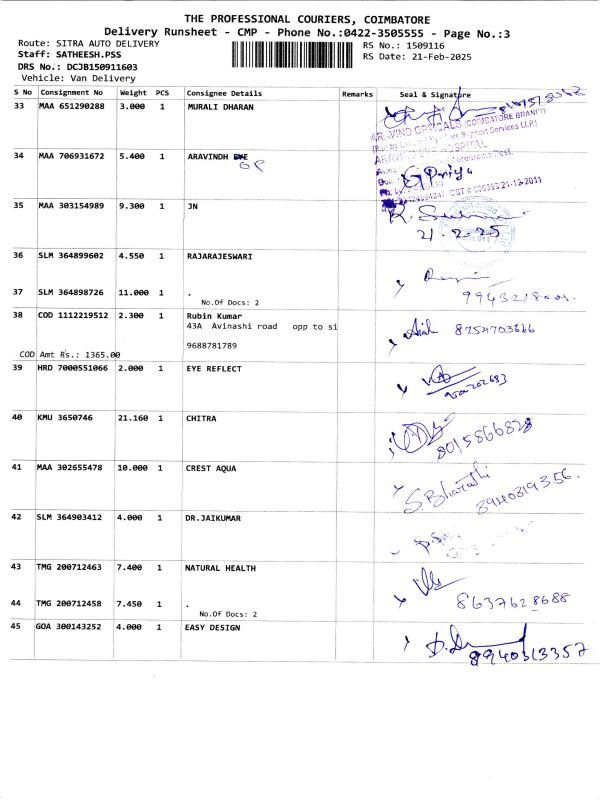 THE PROFESSIONAL COURIERS, COIMBATORE
Delivery Runsheet - CMP - Phone No.:0422-3505555 - Page No.:3
Route: SITRA AUTO DELIVERY
RS No.: 1509116
Staff: SATHEESH.PSS
RS Date: 21-Feb-2025
DRS No.: DCJB150911603
Vehicle: Van Delivery
S No Consignment No Weight PCS Consignee Details Remarks Seal & Signature
33 MAA 651290288 3.000 1 MURALI DHARAN
34 MAA 706931672 5.400 1 ARAVINDH EYE
GP
ARAVIND OPTICALS (COIMBATORE BRANCH)
ARAVIND EYE HOSPITAL
G Priya
35 MAA 303154989 9.300 1 JN
21.2.25
36 SLM 364899602 4.550 1 RAJARAJESWARI
37 SLM 364898726 11.000 1 .
No.Of Docs: 2
38 COD 1112219512 2.300 1 Rubin Kumar
43A Avinashi road opp to si
8754703666
9688781789
COD Amt Rs.: 1365.00
39 HRD 7000551066 2.000 1 EYE REFLECT
40 KMU 3650746 21.160 1 CHITRA
8015866828
41 MAA 302655478 10.000 1 CREST AQUA
S.Bharathi
8940819356.
42 SLM 364903412 4.000 1 DR.JAIKUMAR
43 TMG 200712463 7.400 1 NATURAL HEALTH
44 TMG 200712458 7.450 1 .
No.Of Docs: 2
8637628688
45 GOA 300143252 4.000 1 EASY DESIGN
8940313357